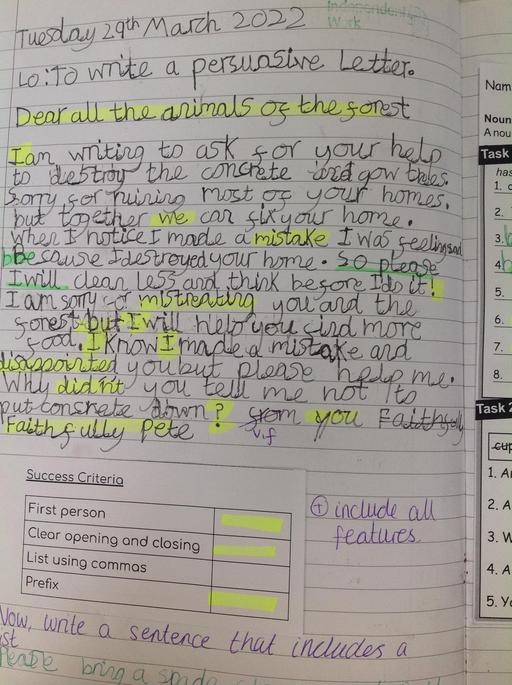 Independent
Work
Tuesday 29th March 2022
Lo: To write a persuasive Letter.
Dear all the animals of the forest
I am writing to ask for your help
to destroy the concrete and gow
Sorry for ruining most of your homes.
but together we can fix your home.
When I notice I made a mistake I was feeling sad
because I destroyed your home. So please
I will clean less and think before I do it!
I am sorry for mistreating you and the
forest but I will help you find more
food. I know I made a mistake and
disappointed you but please help me.
Why didnt you tell me not to
put concrete down? from you Faithfully
Faithfully Pete
v.f
Success Criteria
First person
Clear opening and closing
List using commas
Prefix
+ include all
features.
Now, write a sentence that includes a
Please bring a
Nam
Noun
A nou
Task
has
1. c
2.
3.
4.
5.
6.
7.
8.
Task 2
cup
1. A
2. A
3. W
4. A
5. Yo